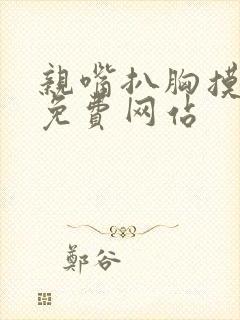 親嘴扒胸摸
免費网佔
鄭谷